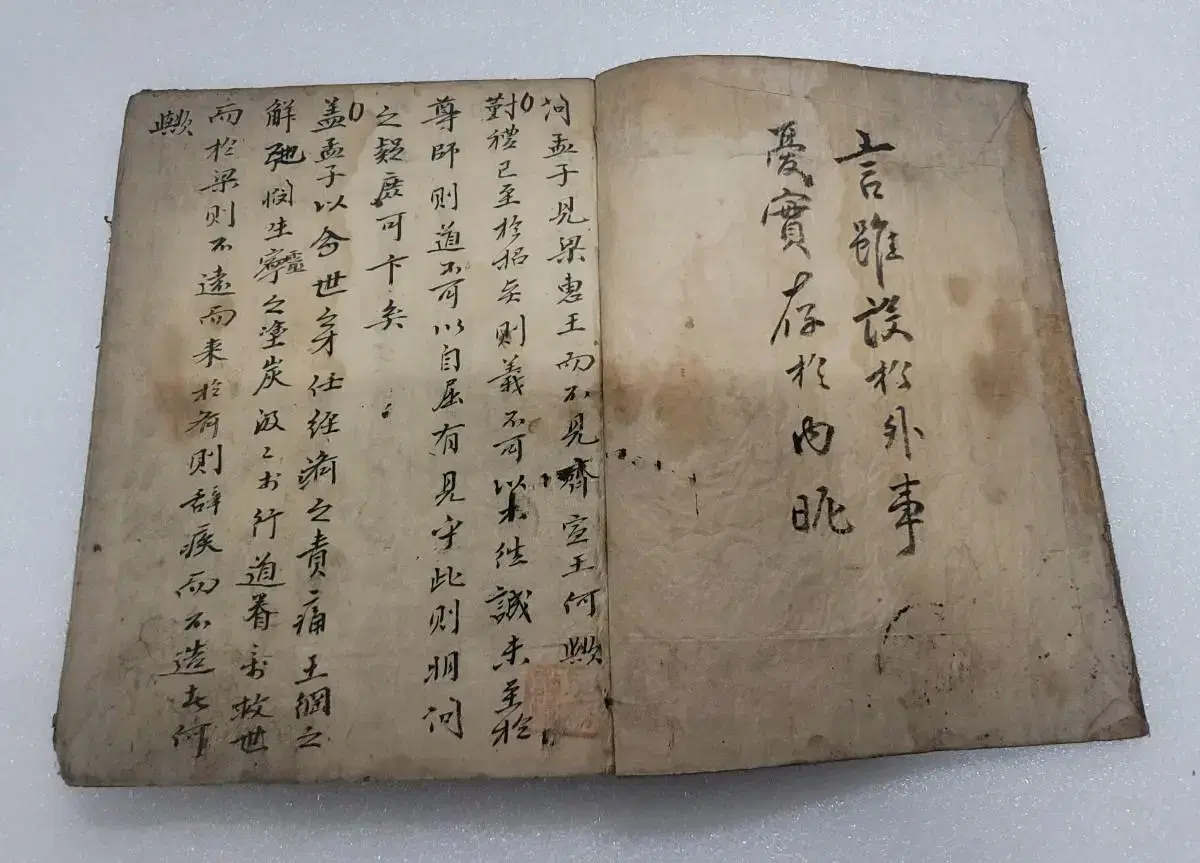 言雖設於外事
憂實存於內昵
问孟子見梁惠王而不見齊宣王何歟
對禮已至於招矣則義不可以不徃誠未至於
尊師則道不可以自屈有見乎此則明问
之疑庶可卞矣
盖孟子以命世之才任經濟之責痛王綱之
解弛悶生靈之塗炭汲〻於行道眷〻於救世
而於梁則不遠而来於齊則辞疾而不造者何
歟